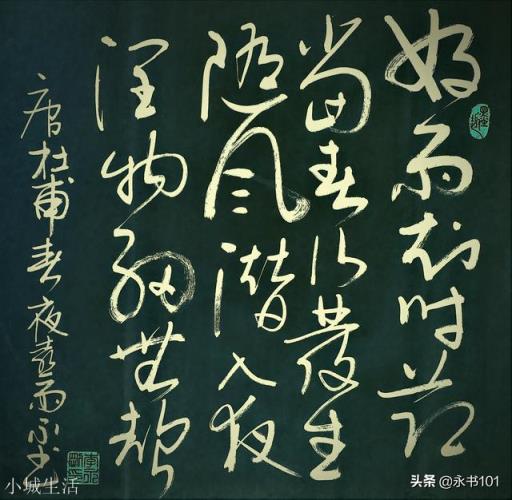 好雨知时节
当春乃發生
随风潜入夜
润物细無聲
唐杜甫春夜喜雨
小城生活
头条 @永书101